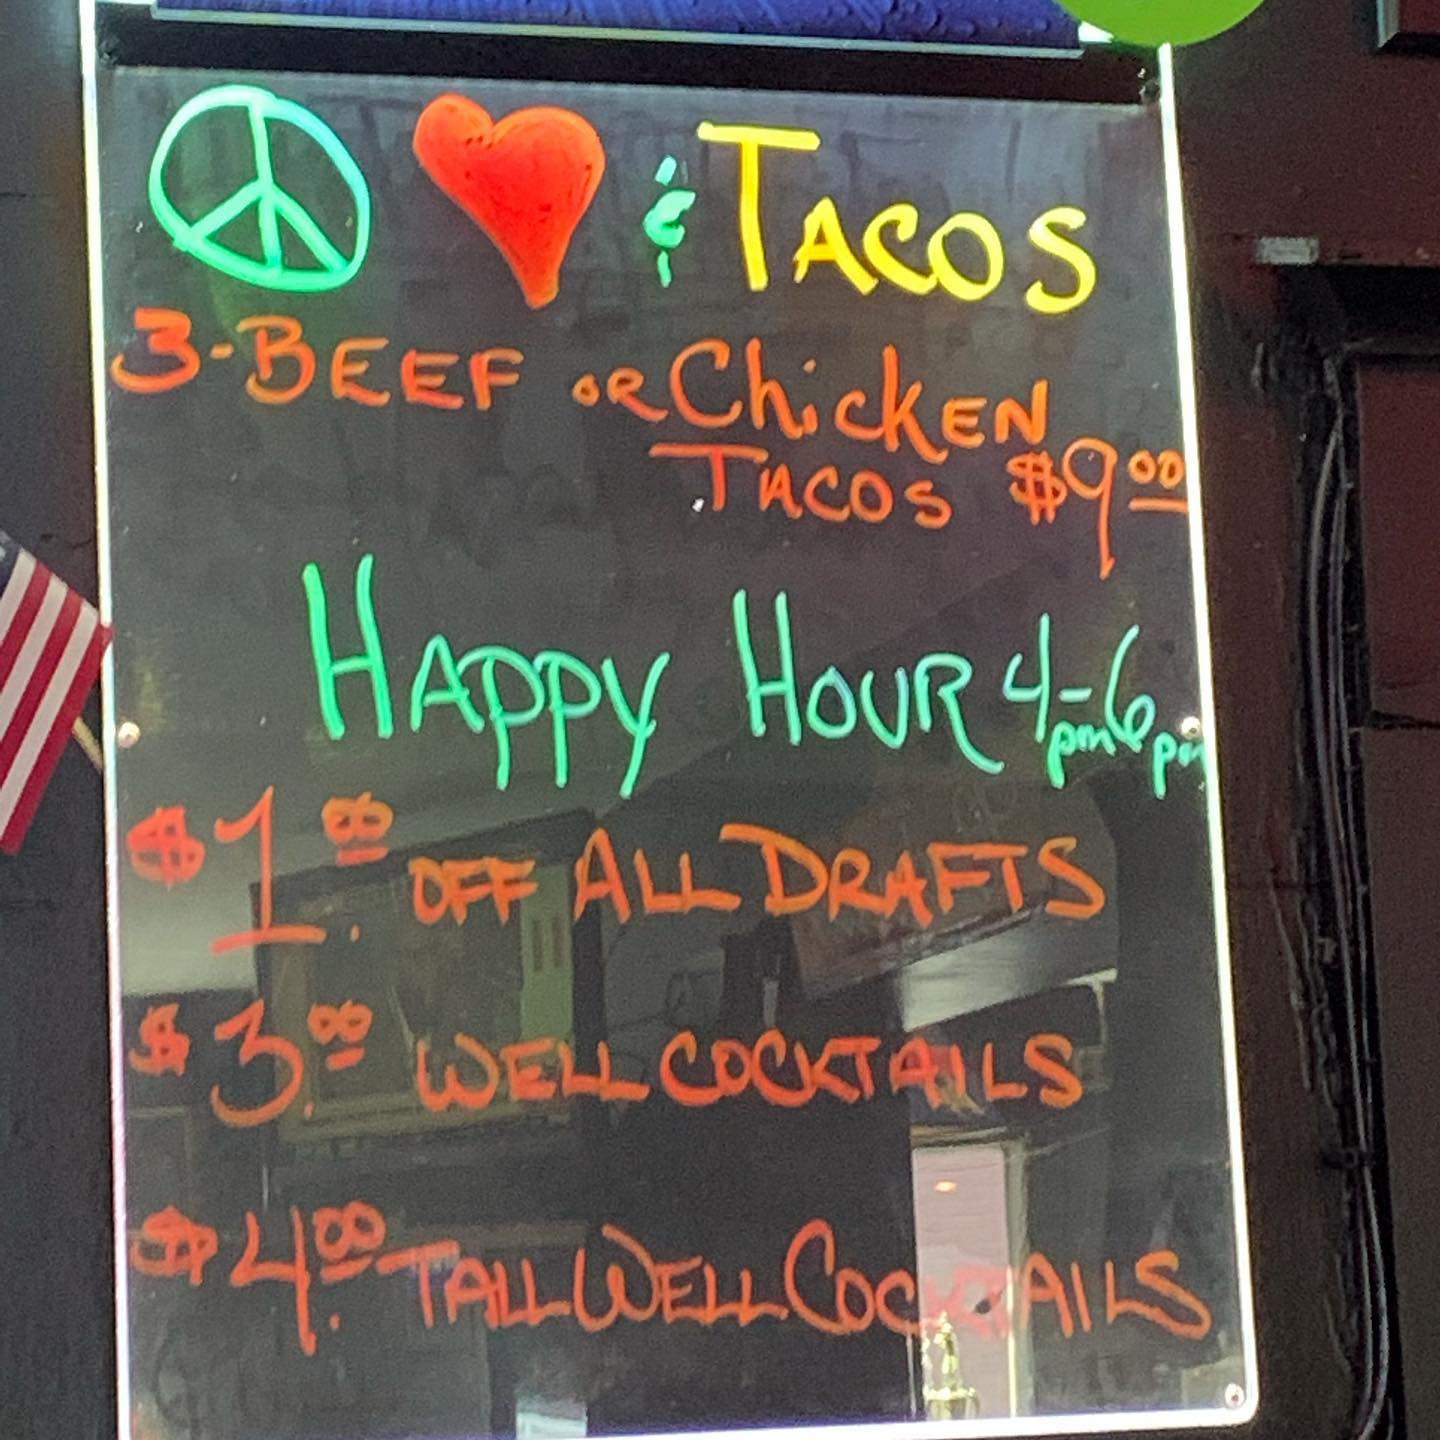 & TACOS
3-BEEF OR ChicKEN
TACOS $9.00
HAPPY HOUR 4pm-6pm
$1.00 OFF ALL DRAFTS
$3.00 WELL COCKTAILS
$4.00 TALL WELL COCKTAILS